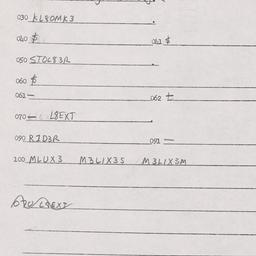 030 KL8OMK3
040 $ 041 $
050 STOL83R
060 $
061 — 062 t
070 — L8EXT
090 RID3R 091 —
100 MLUX3 M3L1X3S M3L1X3M
070/L8EXT